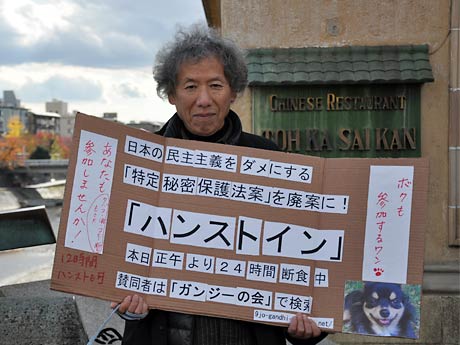 CHINESE RESTAURANT
TOH KA SAI KAN
日本の民主主義をダメにする
「特定秘密保護法案」を廃案に!
「ハンストイン」
本日正午より24時間断食中
賛同者は「ガンジーの会」で検索
9jo-gandhi
net/
あなたも
参加しませんか!
12時間
ハンストも可
ボクも
参加するワン